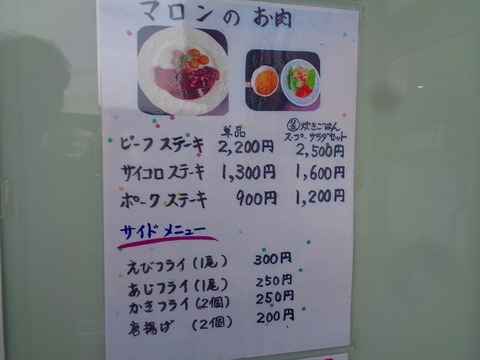 マロンのお肉
単品
炊きごはん
スープ・サラダセット
ビーフステーキ 2,200円 2,500円
サイコロステーキ 1,300円 1,600円
ポークステーキ 900円 1,200円
サイドメニュー
えびフライ(1尾) 300円
あじフライ(1尾) 250円
かきフライ(2個) 250円
唐揚げ (2個) 200円